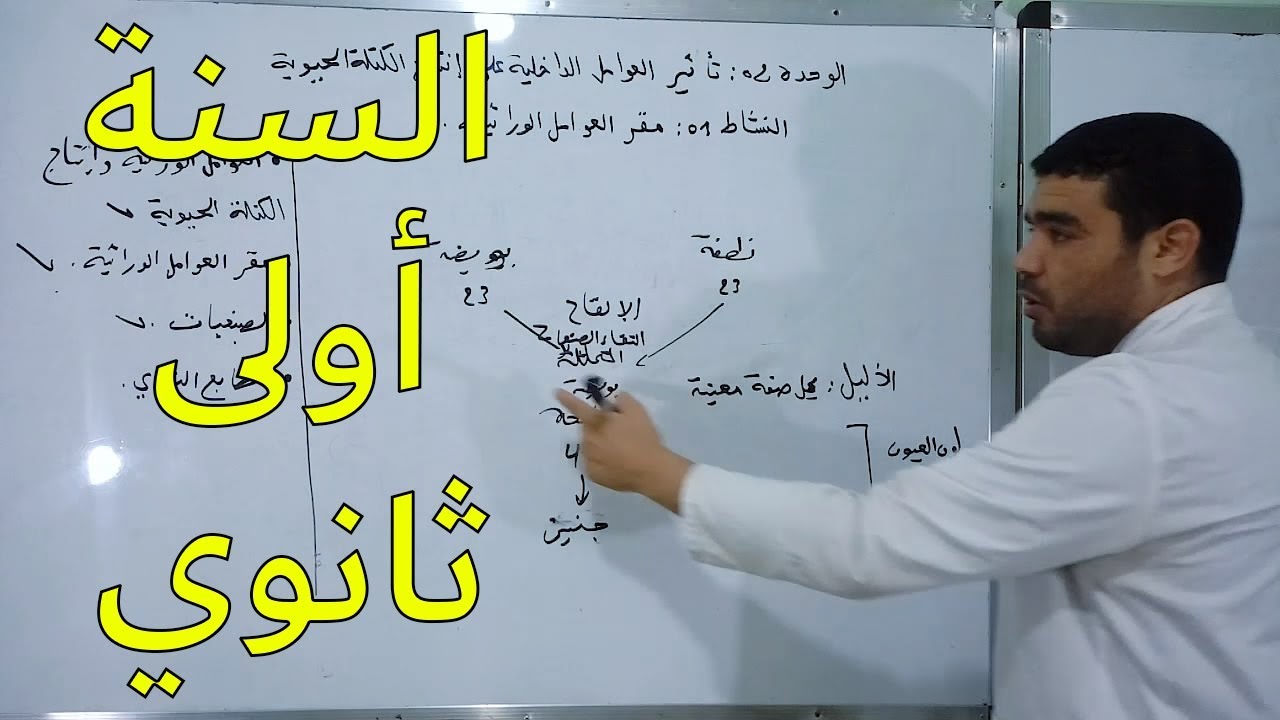 السنة
أولى
ثانوي
الوحدة 02: تأثير العوامل الداخلية على إنتاج الكتلة الحيوية
النشاط 01: مقر العوامل الوراثية.
العوامل الوراثية وإنتاج
الكتلة الحيوية
مقر العوامل الوراثية.
الصبغيات.
نطفة
بويضة
23
23
الإلقاح
التقاء الصبغيات
المتماثلة
بويضة
جنين
الأليل: يحمل صفة معينة
لون العيون